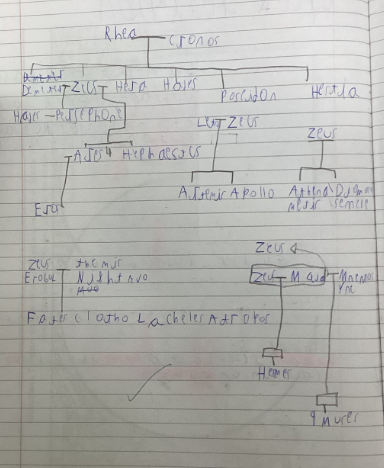 Rhea Cronos
Demeter Zeus Hera Hades Poseidon Hestia
Hades - Persephone
Leto Zeus Zeus
Ares Hephaestus
Artemis Apollo Athena
Metis Semele
Eros
Zeus Themis Zeus
Erobus Night Zeus Maia
Fates Clotho Lachesis Atropos
Hermes
9 Muses